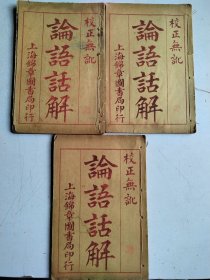 校正無訛
論語話解
上海錦章圖書局印行
校正無訛
論語話解
上海錦章圖書局印行
校正無訛
論語話解
上海錦章圖書局印行